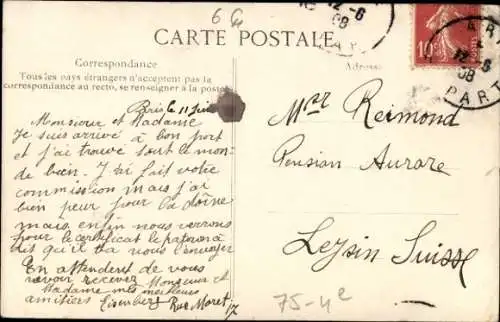 6 G
CARTE POSTALE
Correspondance
Tous les pays étrangers n'acceptent pas la
correspondance au recto, se renseigner à la poste
Adresse
10c
12-6
08
PAR
12-6
08
PART
Paris le 11 juin
Monsieur et Madame
Je suis arrivé à bon port
et j'ai trouvé tout le mon-
de bien. J'ai fait votre
commission mais j'ai
bien peur pour la
mais enfin nous verrons
pour le certificat le
dit qu'il va nous l'envoyer
En attendent de vous
revoir recevez Monsieur et
Madame mes meilleurs
amitiers Rue Moret 17
Msr Reimond
Pension Aurore
Leysin Suisse
75-4e